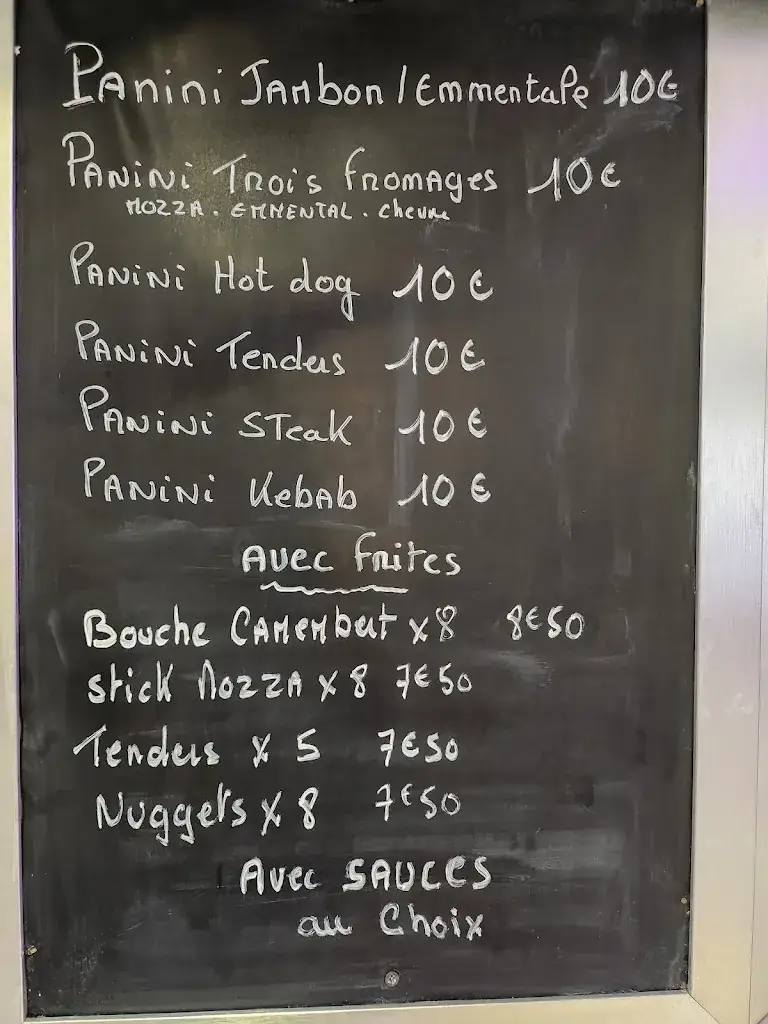 Panini Jambon/Emmentale 10€
Panini Trois fromages 10€
Mozza. Emmental. chevre
Panini Hot dog 10€
Panini Tenders 10€
Panini Steak 10€
Panini Kebab 10€
Avec frites
Bouche Camembert x8 8€50
Stick Mozza x8 7€50
Tenders x 5 7€50
Nuggets x 8 7€50
Avec SAUCES
au Choix